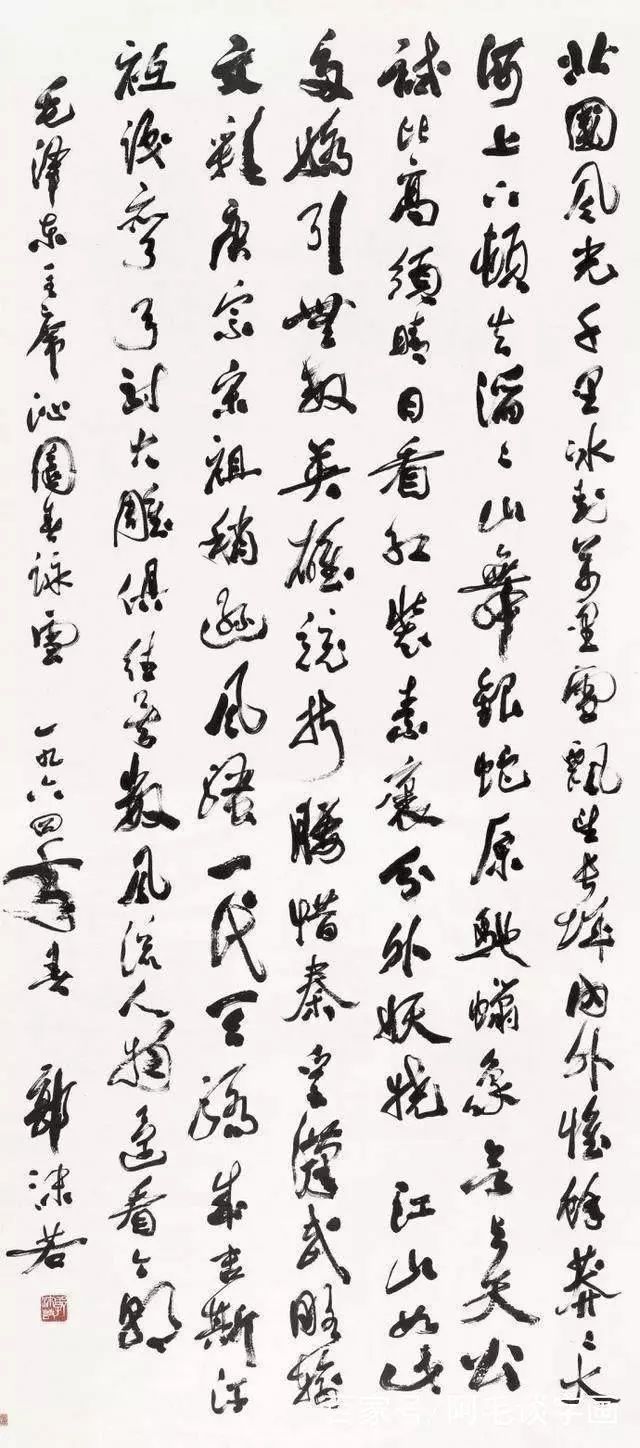 北國風光千里冰封萬里雪飄望長城内外惟餘莽〻大
河上下頓失滔〻山舞銀蛇原馳蠟象欲与天公
試比高須晴日看紅裝素裹分外妖嬈 江山如此
多嬌引無數英雄競折腰惜秦皇漢武略輸
文彩唐宗宋祖稍遜風騷一代天驕成吉斯汗
祗識彎弓射大雕俱往矣數風流人物還看今朝
毛泽東主席沁園春詠雪 一九六四年春 郭沫若
百家号/阿毛谈字画